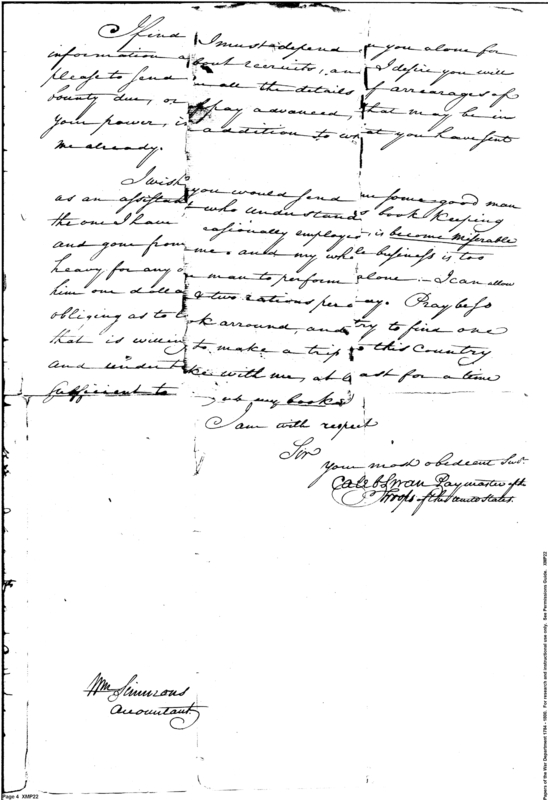 I find I must depend on you alone for
information about recruits, and I desire you will
please to send me all the details of arrearages of
bounty due, or pay advanced, that may be in
your power, in addition to what you have sent
me already.
I wish you would send me some good man
as an assistant who understands book keeping
the one I have occasionally employed is become miserable
and gone from me. and my whole business is too
heavy for any one man to perform alone:—I can allow
him one dollar & two rations per day. Pray be so
obliging as to look arround, and try to find one
that is willing to make a trip to this Country
and undertake with me, at least for a time
sufficient to my books
I am with respect
Sir
your most obedient Servt.
Caleb Swan Paymaster of the
Troops of the United States.
Wm Simmons
Accountant
Page 4 XMP22
Papers of the War Department 1784 - 1800. For research and instructional use only. See Permissions Guide. XMP22